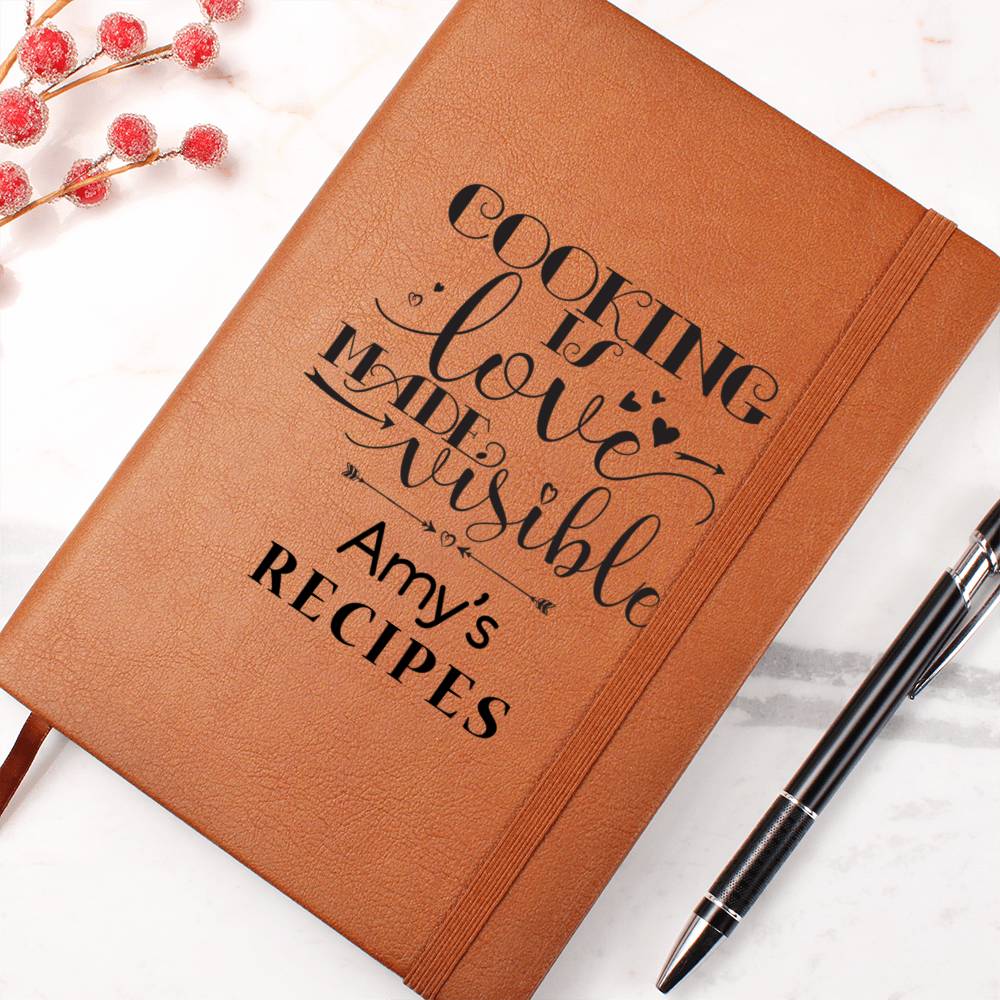 COOKING
IS
love
MADE
visible
Amy's
RECIPES